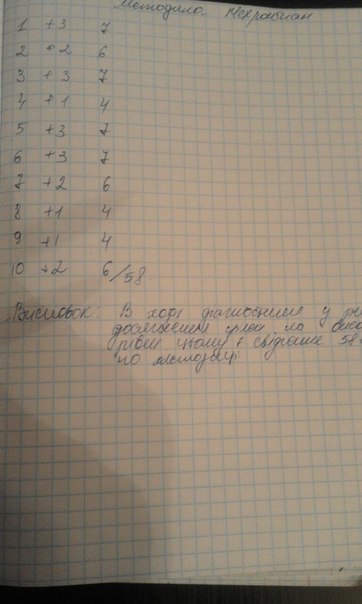 Методика Мехрабіан
1 +3 7
2 +2 6
3 +3 7
4 +1 4
5 +3 7
6 +3 7
7 +2 6
8 +1 4
9 +1 4
10 +2 6/58
Висновок: В ході діагностики у
досягнення цілей на
рівні цьому є свідчення 58
по методиці